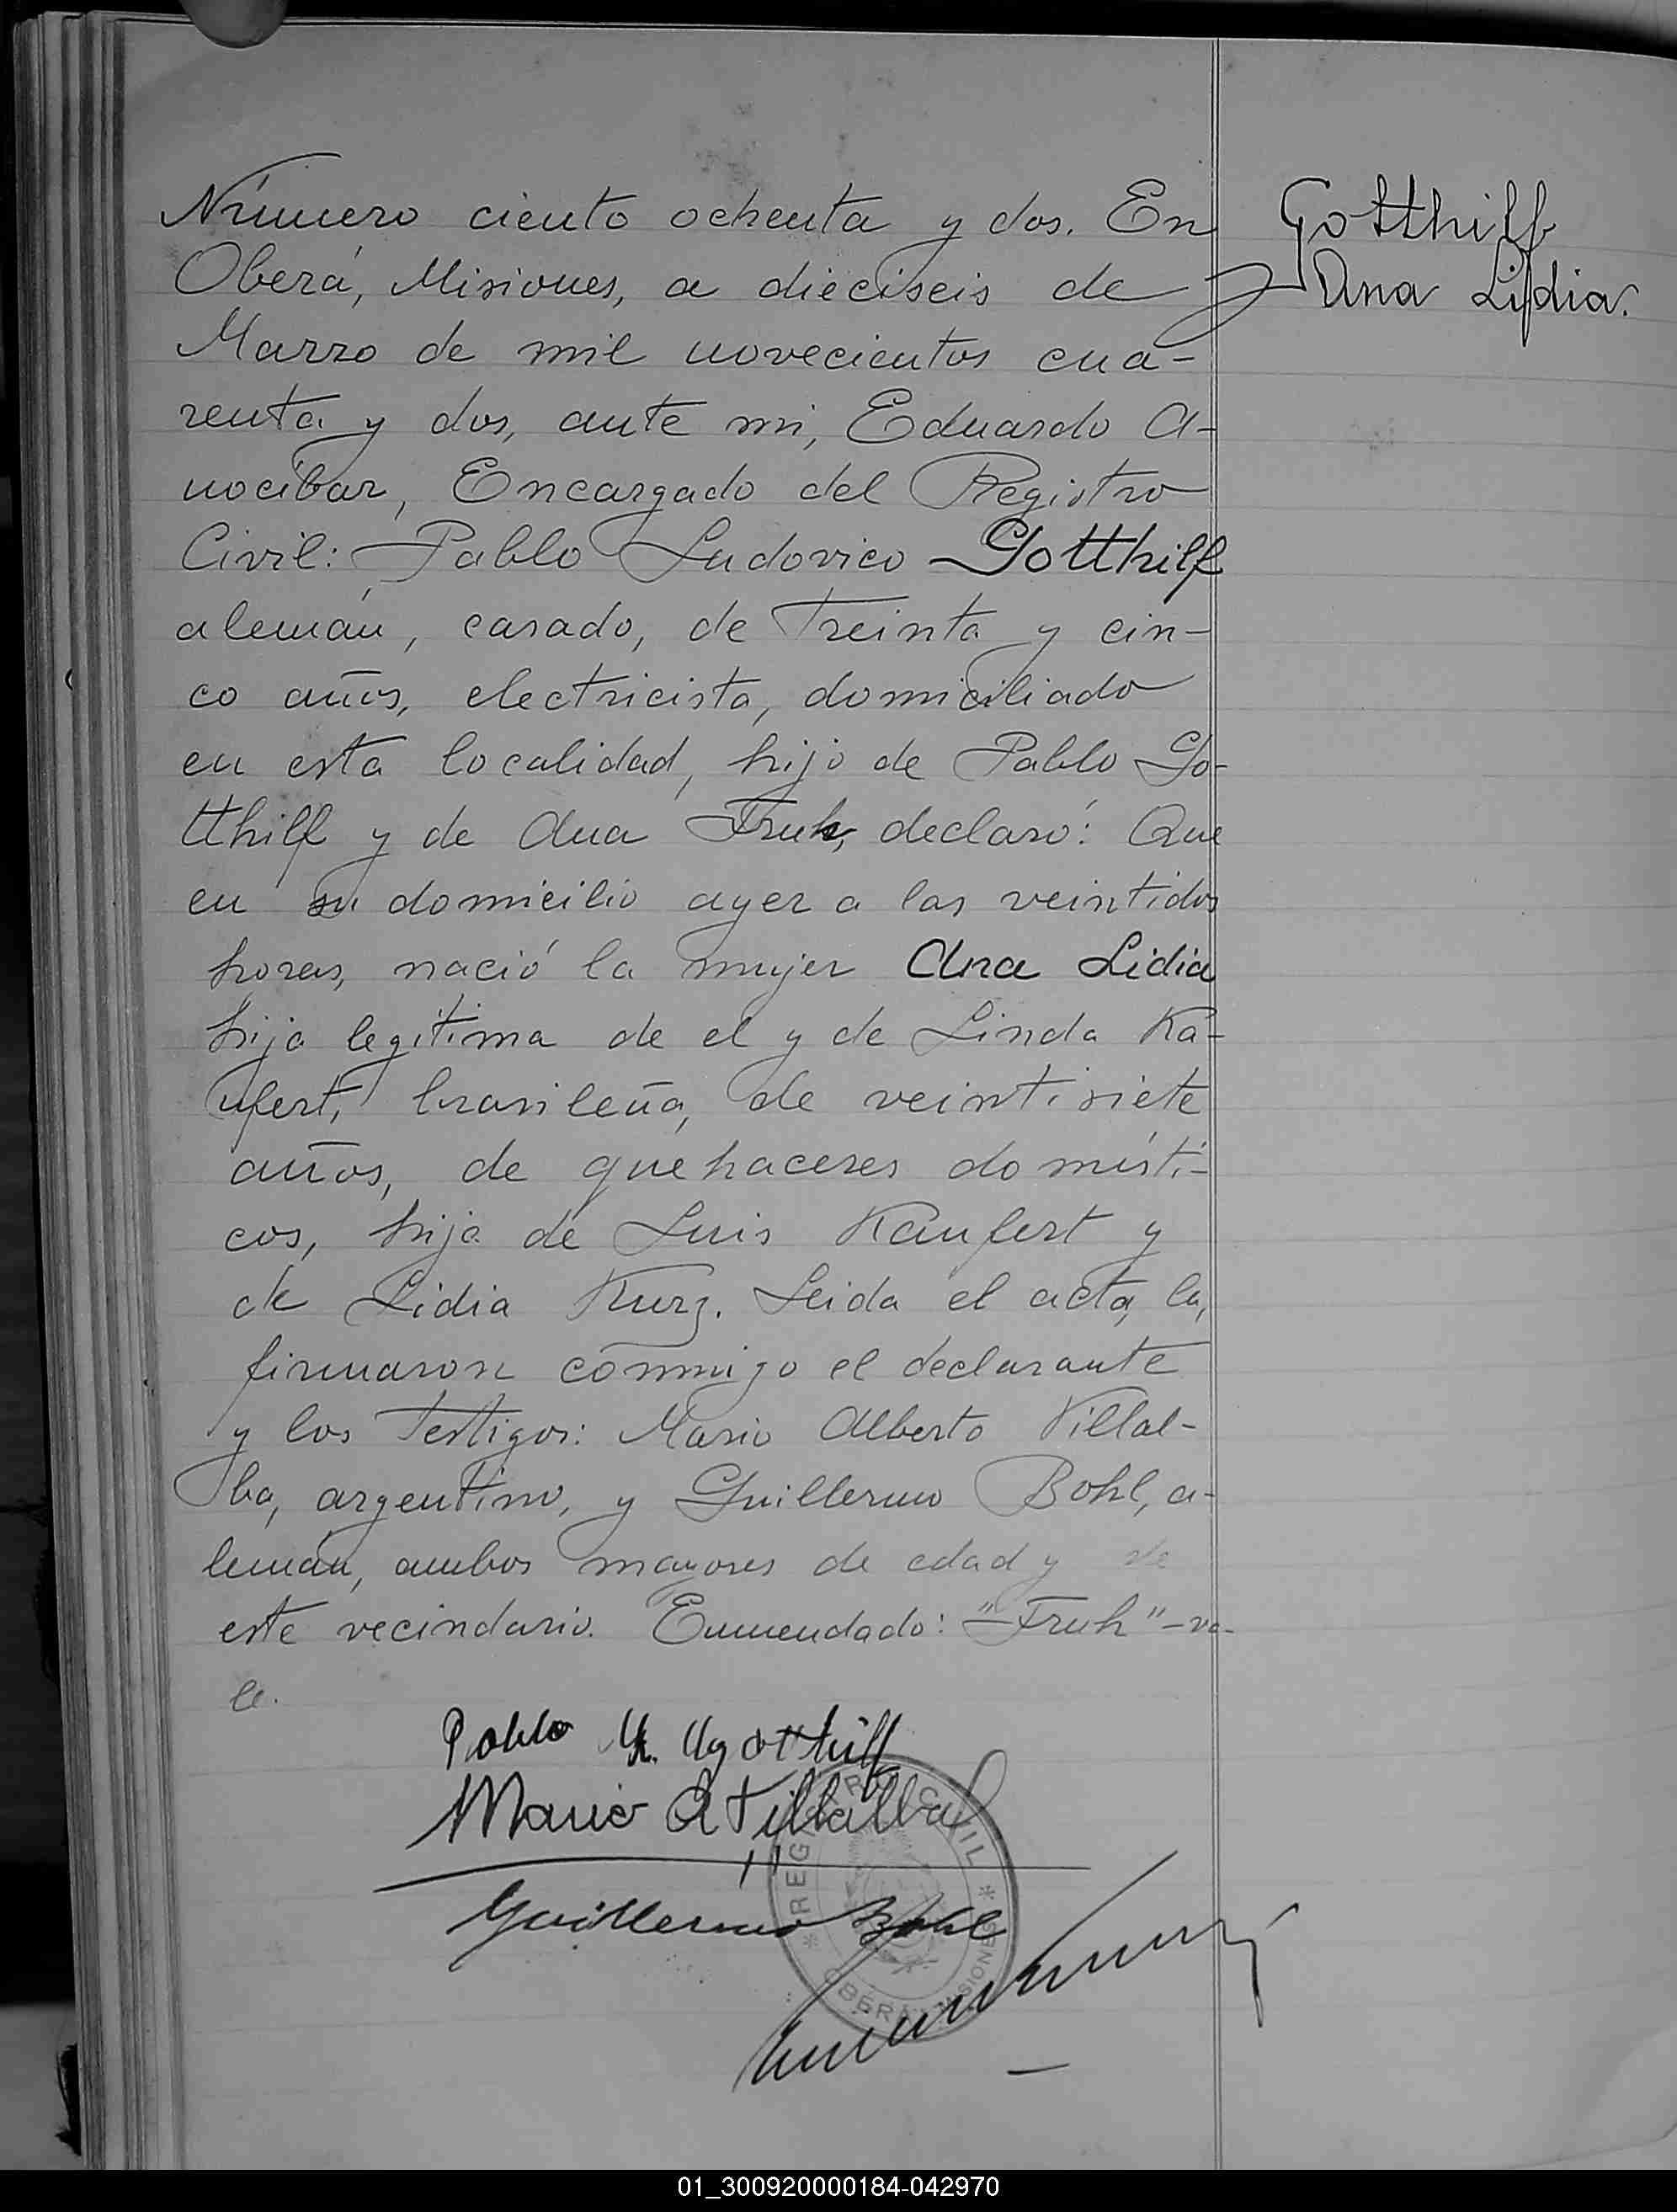 Número ciento ochenta y dos. En
Oberá, Misiones, a dieciseis de
Marzo de mil novecientos cua-
renta y dos, ante mi, Eduardo A-
nocibar, Encargado del Registro
Civil: Pablo Ludovico Gotthilf
alemán, casado, de treinta y cin-
co años, electricista, domiciliado
en esta localidad, hijo de Pablo Go-
tthilf y de Ana Fruh, declaró: Que
en su domicilio ayer a las veintidos
horas, nació la mujer Ana Lidia
hija legítima de el y de Linda Ka-
ufert, brasileña, de veintisiete
años, de quehaceres domésti-
cos, hija de Luis Kaufert y
de Lidia Kurz. Leida el acta, la,
firmaron conmigo el declarante
y los testigos: Mario Alberto Villal-
ba, argentino, y Guillermo Bohl, a-
lemán, ambos mayores de edad y de
este vecindario. Enmendado: "Fruh" - va-
le.
Gotthilf
Ana Lidia.
Pablo L. Gotthilf
Mario A Villalba
Guillermo Bohl
REGISTRO CIVIL
OBERÁ MISIONES
01_300920000184-042970